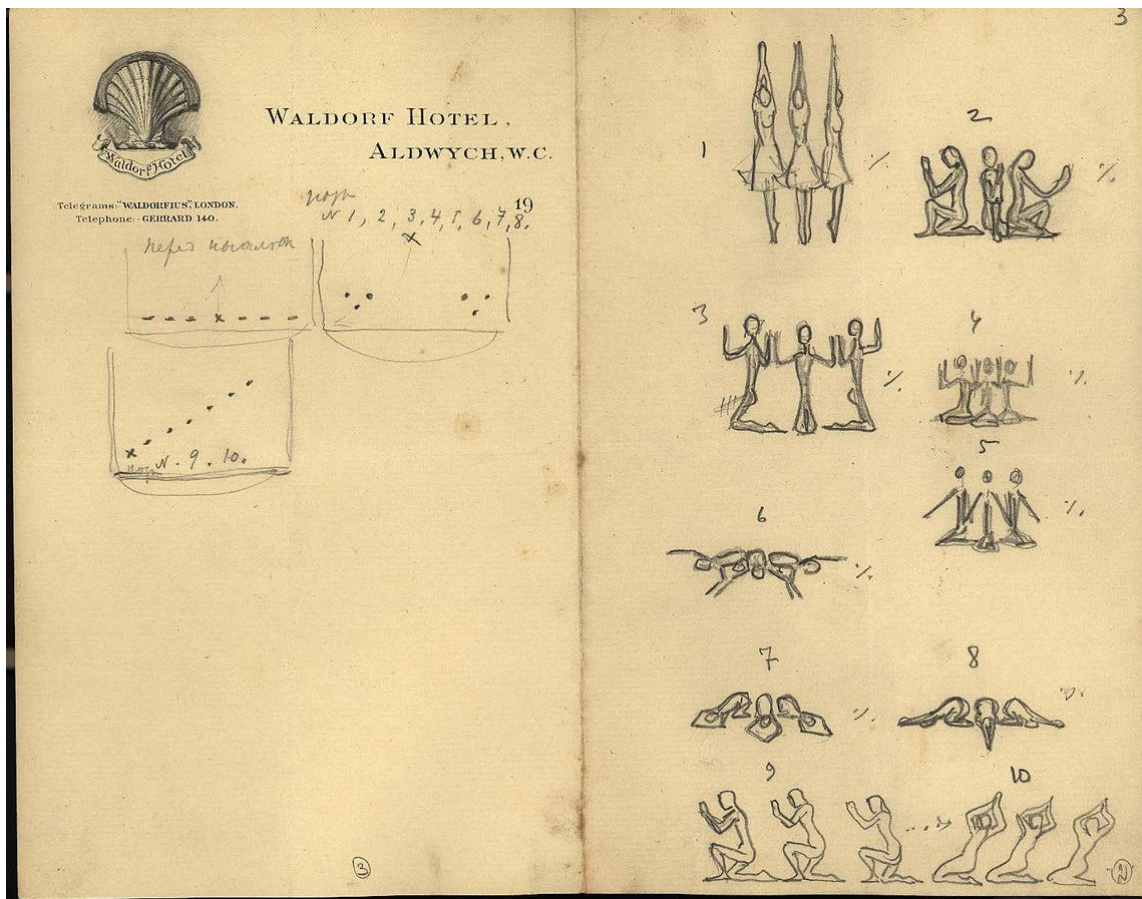 3
Waldorf Hotel
WALDORF HOTEL,
ALDWYCH, W.C.
Telegrams: "WALDORFIUS", LONDON.
Telephone: GERRARD 140.
19
N 1, 2, 3, 4, 5, 6, 7, 8.
перед
N. 9. 10.
3
1
·/.
2
·/.
3
·/.
4
·/.
5
·/.
6
·/.
7
·/.
8
9
10
2